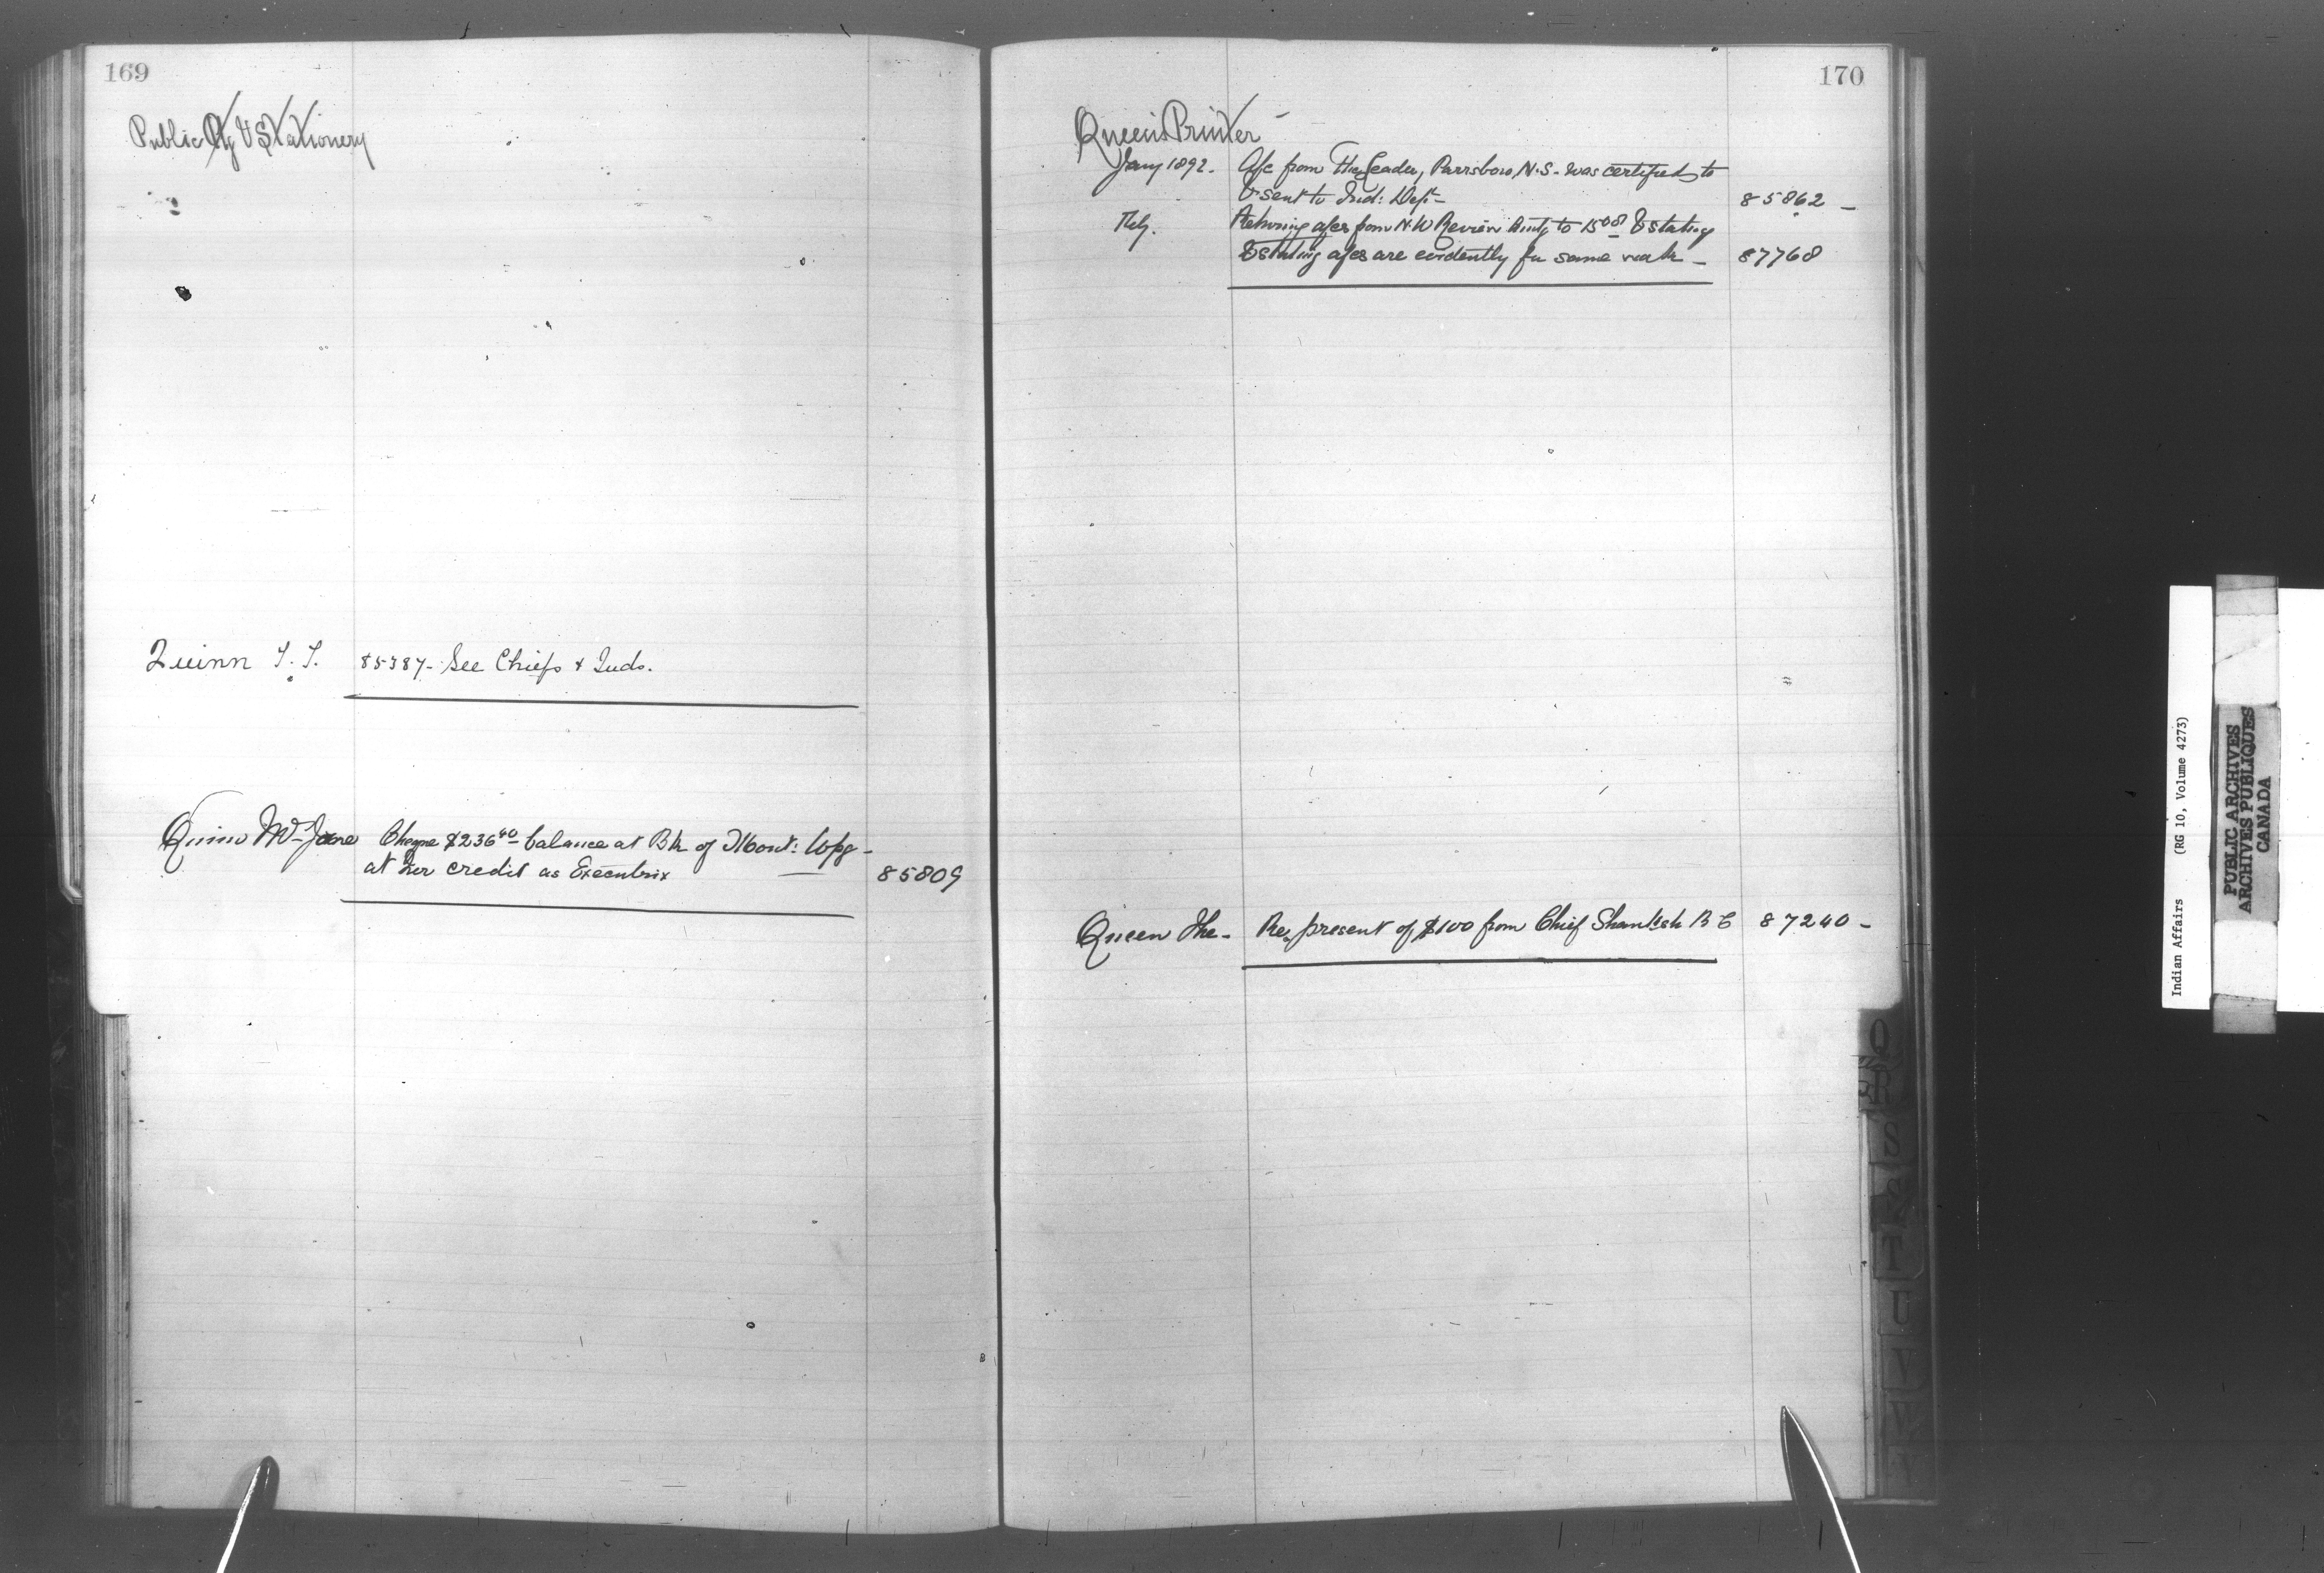 169
Public Ptg & Stationery
Quinn T. T. 85387- See Chiefs & Inds.
Quinn Mrs Jane Cheque $236 40 balance at Bk of Mont: Wpg -
at her credit as Executrix 85809
170
Queen's Printer -
Jany 1892. A/c from The Leader, Parrsboro, N.S. was certified to
& sent to Ind: Dept - 85862 -
Feby. Returning a/cs from N.W Review amtg to 15 08 & stating
& stating a/cs are evidently for same work - 87768
Queen The - Re present of $100 from Chief B C 87240 -
Q
R
S
T
U
V
Indian Affairs (RG 10, Volume 4273)
PUBLIC ARCHIVES
ARCHIVES PUBLIQUES
CANADA